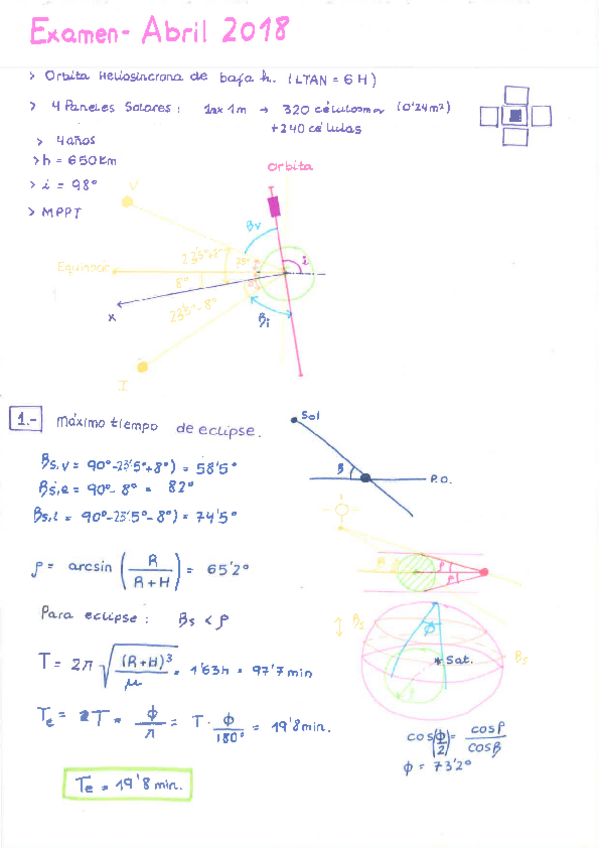 Examen- Abril 2018
> Orbita Heliosincrona de baja h. (LTAN = 6 H)
> 4 Paneles Solares: 1m x 1m → 320 células mar (0'24m²)
+240 células
> 4 años
> h = 650 km
> i = 98°
> MPPT
Orbita
V
βv
i
Equinocio
8°
23'5°-8°
x
βi
I
1.- Máximo tiempo de eclipse.
Sol
β
P.O.
βs,v = 90°-23'5°+8°) = 58'5°
βs,e = 90°- 8° = 82°
βs,i = 90°-23'5°-8°) = 74'5°
ρ = arcsin (R / (R+H)) = 65'2°
Para eclipse: βs < ρ
T = 2π √((R+H)³ / μ) = 1'63h = 97'7 min
φ
Sat.
Te = 2T = φ/π = T · φ/180° = 19'8min.
cos(φ/2) = cosρ / cosβ
φ = 73'2°
Te = 19'8 min.